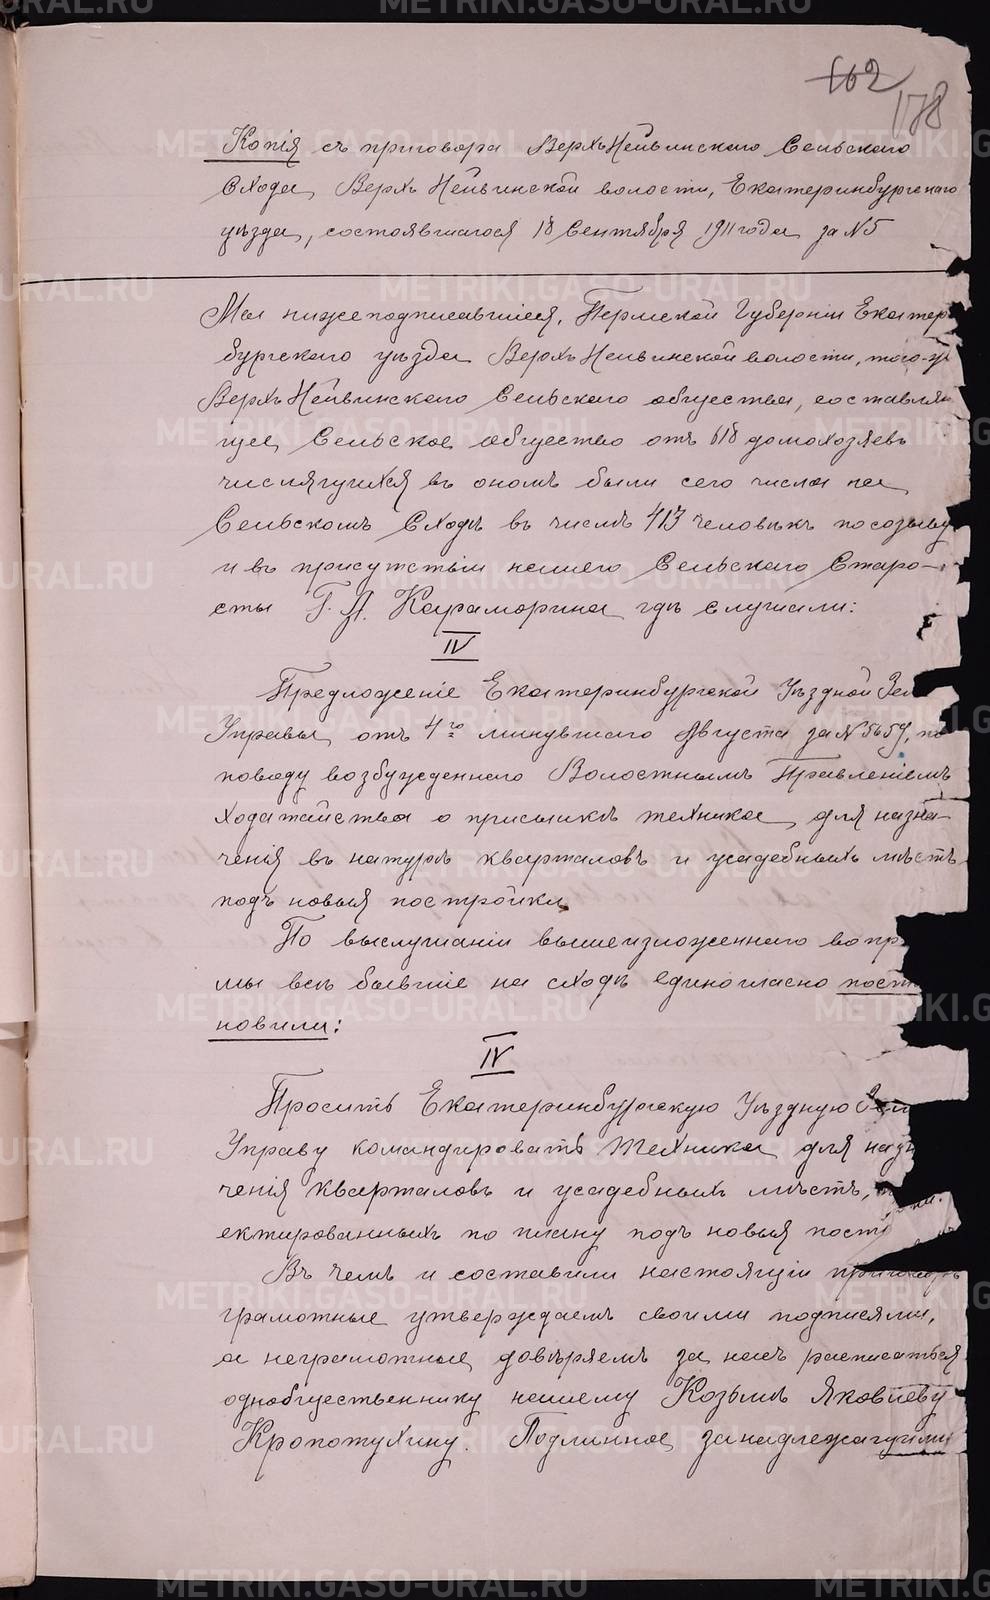 162
178
Копія съ приговора Верхъ Нейвинскаго Сельскаго
Схода, Верхъ Нейвинской волости, Екатеринбургскаго
уѣзда, состоявшагося 18 Сентября 1911 года за N5
Мы нижеподписавшіеся, Пермской Губерніи Екатер
бургскаго уѣзда Верхъ Нейвинской волости, того-
Верхъ Нейвинскаго Сельскаго общества, составля
щее Сельское общество отъ 618 домохозяевъ
числящихся въ ономъ были сего числа на
Сельскомъ Сходѣ въ числѣ 413 человѣкъ по созыву
и въ присутствіи нашего Сельскаго Старо-
сты Г. Л. Караморина гдѣ слушали:
IV
Предложеніе Екатеринбургской Уѣздной Зем
Управы отъ 4го минувшаго Августа за N5659, по
поводу возбужденнаго Волостнымъ Правленіемъ
ходатайства о присылкѣ техника для назна-
ченія въ натурѣ кварталовъ и усадебныхъ мѣстъ
подъ новыя постройки.
По выслушаніи вышеизложеннаго вопр
мы всѣ бывшіе на сходѣ единогласно поста
новили:
IV
Просить Екатеринбургскую Уѣздную Зем
Управу командировать техника для назн
ченія кварталовъ и усадебныхъ мѣстъ,
ектированныхъ по плану подъ новыя постр
Въ чемъ и составили настоящій приговоръ
грамотные утверждаемъ своими подписями,
а неграмотные довѣряемъ за насъ расписаться
однобщественнику нашему Козьмѣ Яковлеву
Кропотухину. Подлинное за надлежащими
METRIKI.GASO-URAL.RU